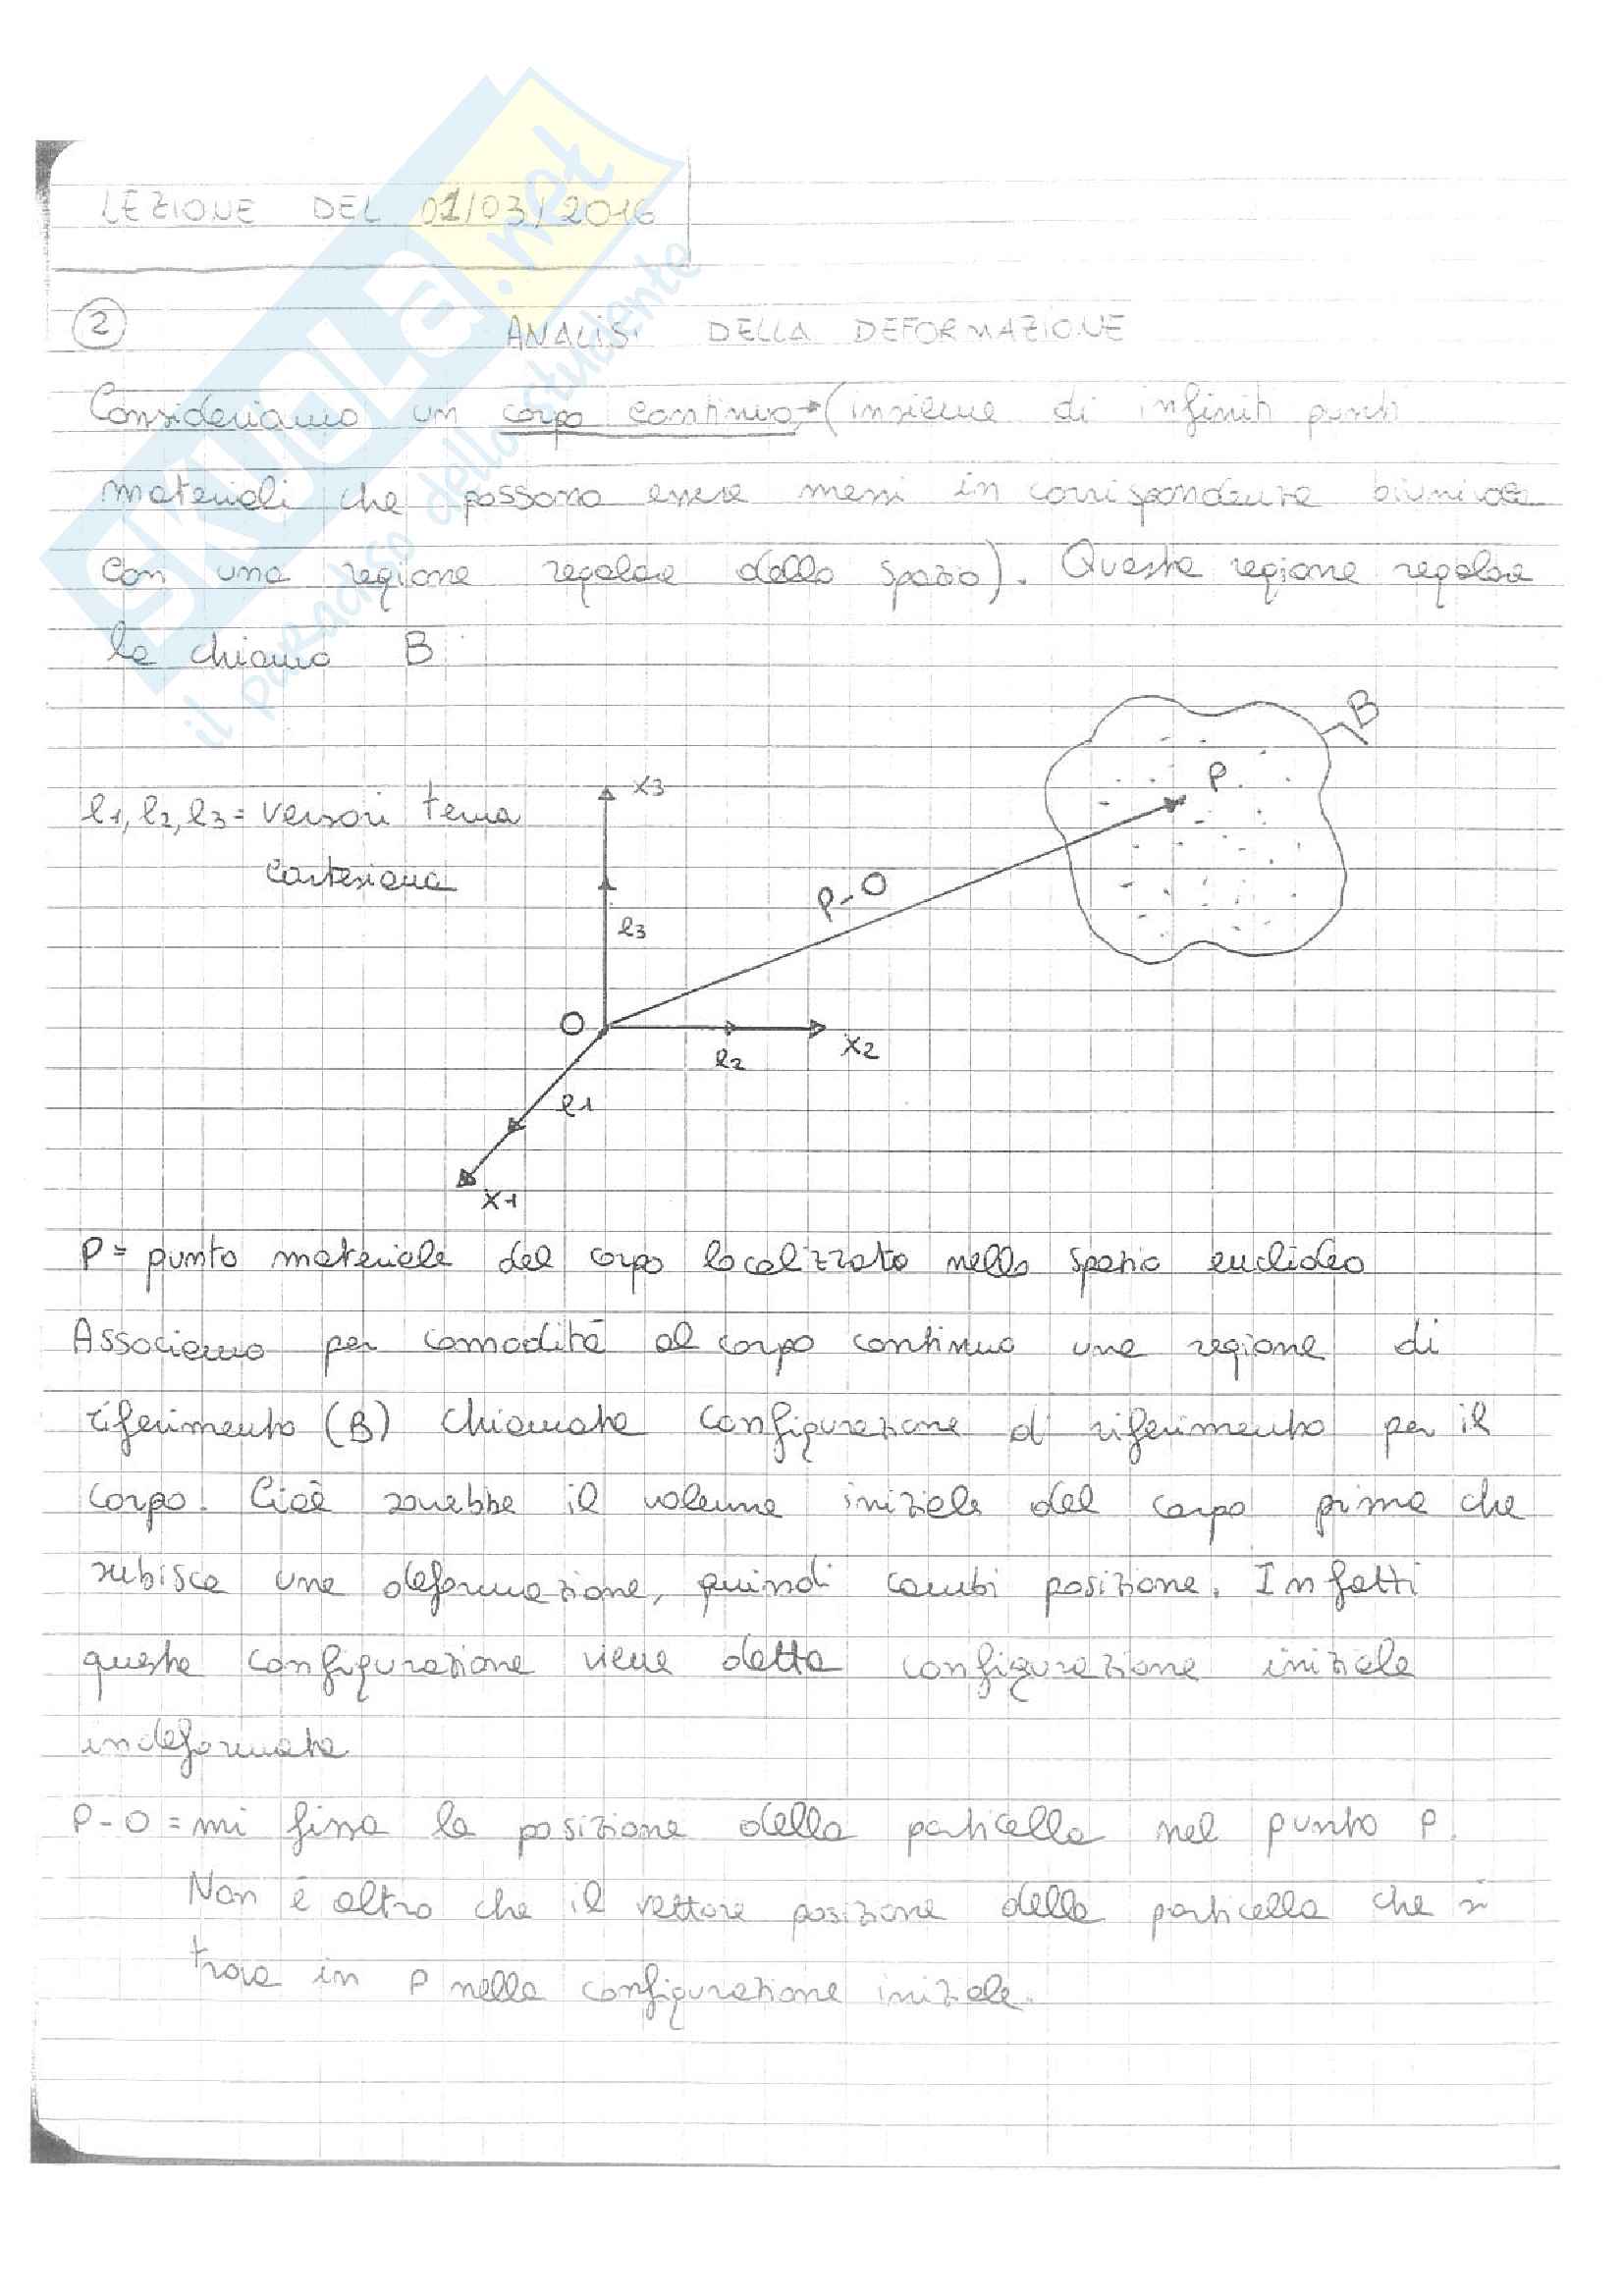 LEZIONE DEL 01/03/2016
2
ANALISI DELLA DEFORMAZIONE
Consideriamo un corpo continuo → (insieme di infiniti punti
materiali che possono essere messi in corrispondenza biunivoca
con una regione regolare dello spazio). Questa regione regolare
la chiamo B
B
P.
x3
e1, e2, e3 = versori terna
cartesiana
P-O
e3
O
x2
e2
e1
x1
P = punto materiale del corpo localizzato nello spazio euclideo
Associamo per comodità al corpo continuo una regione di
riferimento (B) chiamata configurazione di riferimento per il
corpo. Cioè sarebbe il volume iniziale del corpo prima che
subisca una deformazione, quindi cambi posizione. Infatti
questa configurazione viene detta configurazione iniziale
indeformata
P-O = mi fissa la posizione della particella nel punto P.
Non è altro che il vettore posizione della particella che si
trova in P nella configurazione iniziale.
SKUOLA.net
il paradiso dello studente